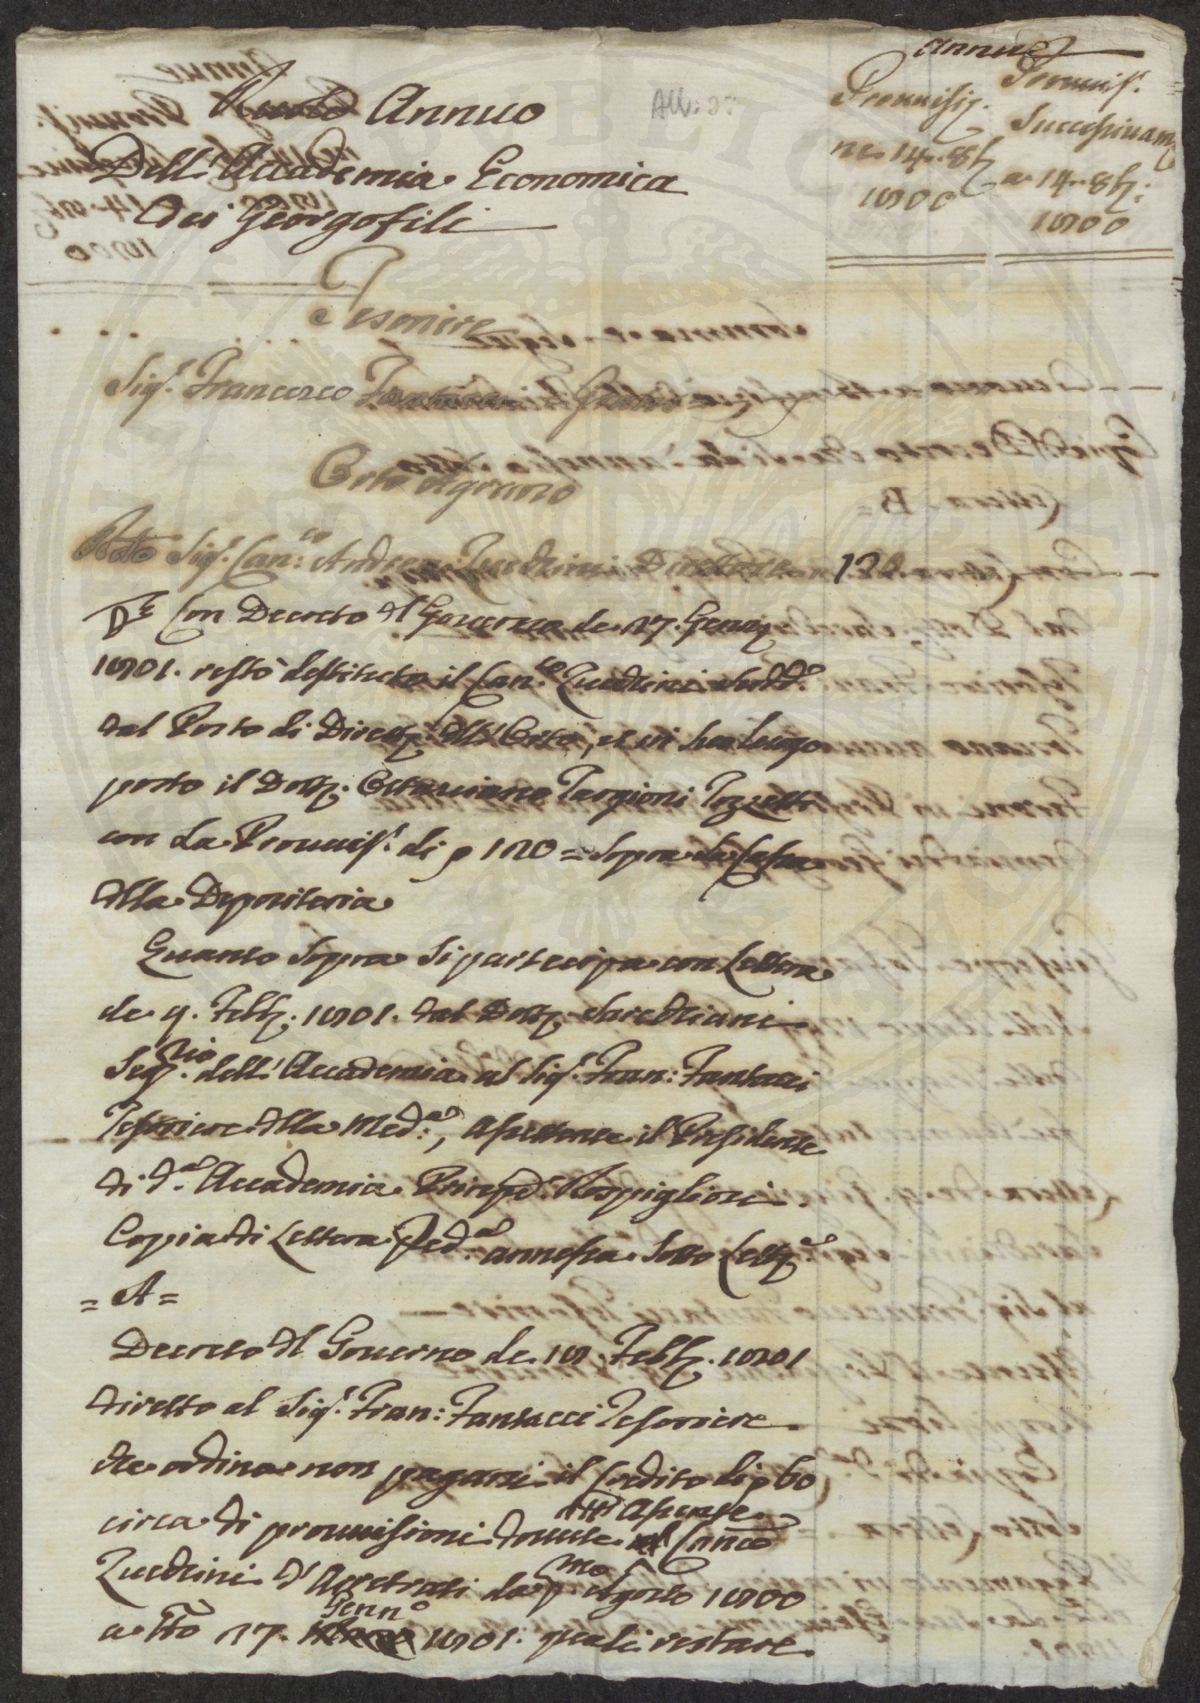 Annuo
Dell'Accademia Economica
dei Georgofili
Annue
Provvis.
ne 14. 8b
1800
Provvis.
Successivam.
a 14. 8b:
1800
Tesoriere
Sig.r Francesco Fantacci
Orto Agrario
Sig.r Can:co Andrea Zucchini Direttore 120
Con Decreto del Governo de 27. Genn
1801. restò destituto il Can.co Zucchini sudd.o
dal Posto di Dirett. dell'Orto, et in suo luogo
posto il Dott. Ottaviano Targioni Tozzetti
con La Provvis. di p 120 = Sopra la Cassa
della Depositeria
Quanto Sopra Si partecipa con Lettera
de 9. Febb. 1801. dal Dott. Sarchiani
Seg.rio dell'Accademia al Sig.r Fran: Fantacci
Tesoriere della Med:a, Assente il Presidente
di d.a Accademia Princip.e Rospigliosi.
Copia di Lettera Pred.a annessa Sotto Lett.a
= A =
Decreto del Governo de 18 Febb. 1801
diretto al Sig.r Fran: Fantacci Tesoriere
che ordina non pagarsi il Credito di p 60
circa di provvisioni dovute al Can.co
Assente
Zucchini d'Arretrati da p.mo Agosto 1800
a tto 27. Genn.o 1801. quali restare